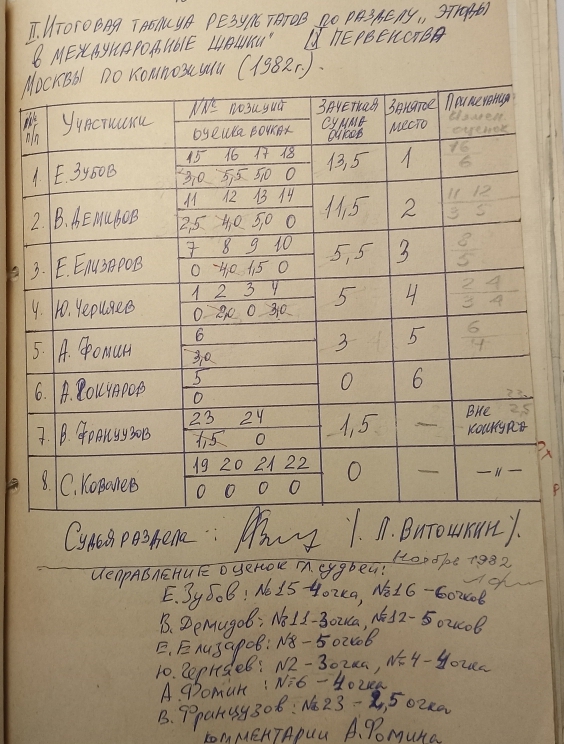 II. Итоговая таблица результатов по разделу „Этюды
в международные шашки" первенства
Москвы по композиции (1982г.).
№№ п/п Участники №№ позиций Зачетная сумма очков Занятое место Примечания
оценка в очках Измен. оценок
15 16 17 18 16
1. Е. Зубов 13,5 1
3,0 5,5 5,0 0 6
11 12 13 14 11 12
2. В. Демидов 11,5 2
2,5 4,0 5,0 0 3 5
7 8 9 10 8
3. Е. Елизаров 5,5 3
0 4,0 1,5 0 5
1 2 3 4 2 4
4. Ю. Черняев 5 4
0 2,0 0 3,0 3 4
6 6
5. А. Фомин 3 5
3,0 4
5
6. А. Гончаров 0 6
0
23 24 23 2,5
7. В. Французов 1,5 — Вне конкурса
1,5 0
19 20 21 22
8. С. Ковалев 0 — —"—
0 0 0 0
Судья раздела: /Л. Витошкин/.
Ноябрь 1982
Исправление оценок гл. судьей:
Е. Зубов: №15-4очка, №16-6очков
В. Демидов: №11-3очка, №12-5очков
Е. Елизаров: №8-5очков
Ю. Черняев: №2-3очка, №4-4очка
А. Фомин: №6-4очка
В. Французов: №23-2,5очка
комментарии А. Фомина